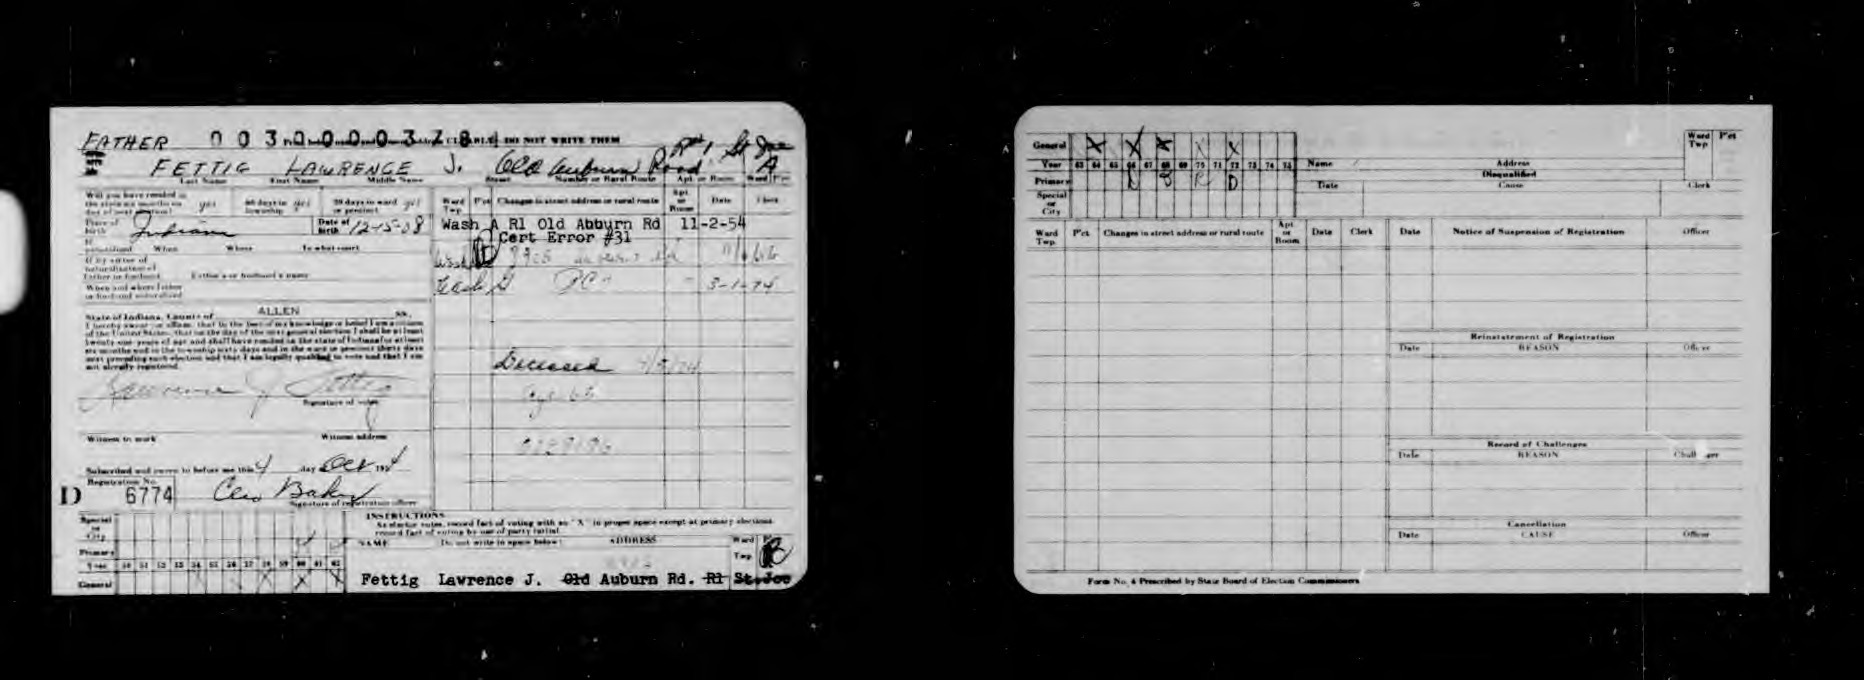 FATHER 0 0 3 0 0 0 0 3 7 8 DO NOT WRITE THEM
FETTIG LAWRENCE J. Old Auburn Road Rt 1 St Joe A
Last Name First Name Middle Name Street Number or Rural Route Apt. or Room Ward P'ct
Will you have resided in the state six months on day of next election? yes 60 days in township yes 30 days in ward or precinct yes
Place of birth Indiana Date of birth 12-15-08
If naturalized When Where In what court
If by virtue of naturalization of father or husband Father's or husband's name
When and where father or husband naturalized
State of Indiana, County of ALLEN SS.
I hereby swear or affirm, that to the best of my knowledge or belief I am a citizen
of the United States, that on the day of the next general election I shall be at least
twenty-one years of age and shall have resided in the state of Indiana for at least
six months and in the township sixty days and in the ward or precinct thirty days
next preceding such election and that I am legally qualified to vote and that I am
not already registered.
Lawrence J. Fettig
Signature of voter
Witness to mark Witness address
Subscribed and sworn to before me this 4 day Oct 1954
Registration No.
D 6774 Cleo Baker
Signature of registration officer
Ward Twp. P'ct Changes in street address or rural route Apt. or Room Date Clerk
Wash A Rl Old Abburn Rd 11-2-54
Cert Error #31
Wash
Wash G 3-1-74
Deceased
INSTRUCTIONS
As elector votes, record fact of voting with an "X" in proper space except at primary elections
record fact of voting by use of party initial.
NAME Do not write in space below: ADDRESS Ward Twp. P
Fettig Lawrence J. Old Auburn Rd. Rl St.Joe
Special or City
Primary
Year 50 51 52 53 54 55 56 57 58 59 60 61 62
General X X
General X X X X X
Year 63 64 65 66 67 68 69 70 71 72 73 74 75
Primary R D
Special or City
Name Address Ward Twp P'ct
Disqualified
Date Cause Clerk
Ward Twp. P'ct Changes in street address or rural route Apt. or Room Date Clerk
Date Notice of Suspension of Registration Officer
Reinstatement of Registration
Date REASON Officer
Record of Challenges
Date REASON Challenger
Cancellation
Date CAUSE Officer
Form No. 4 Prescribed by State Board of Election Commissioners